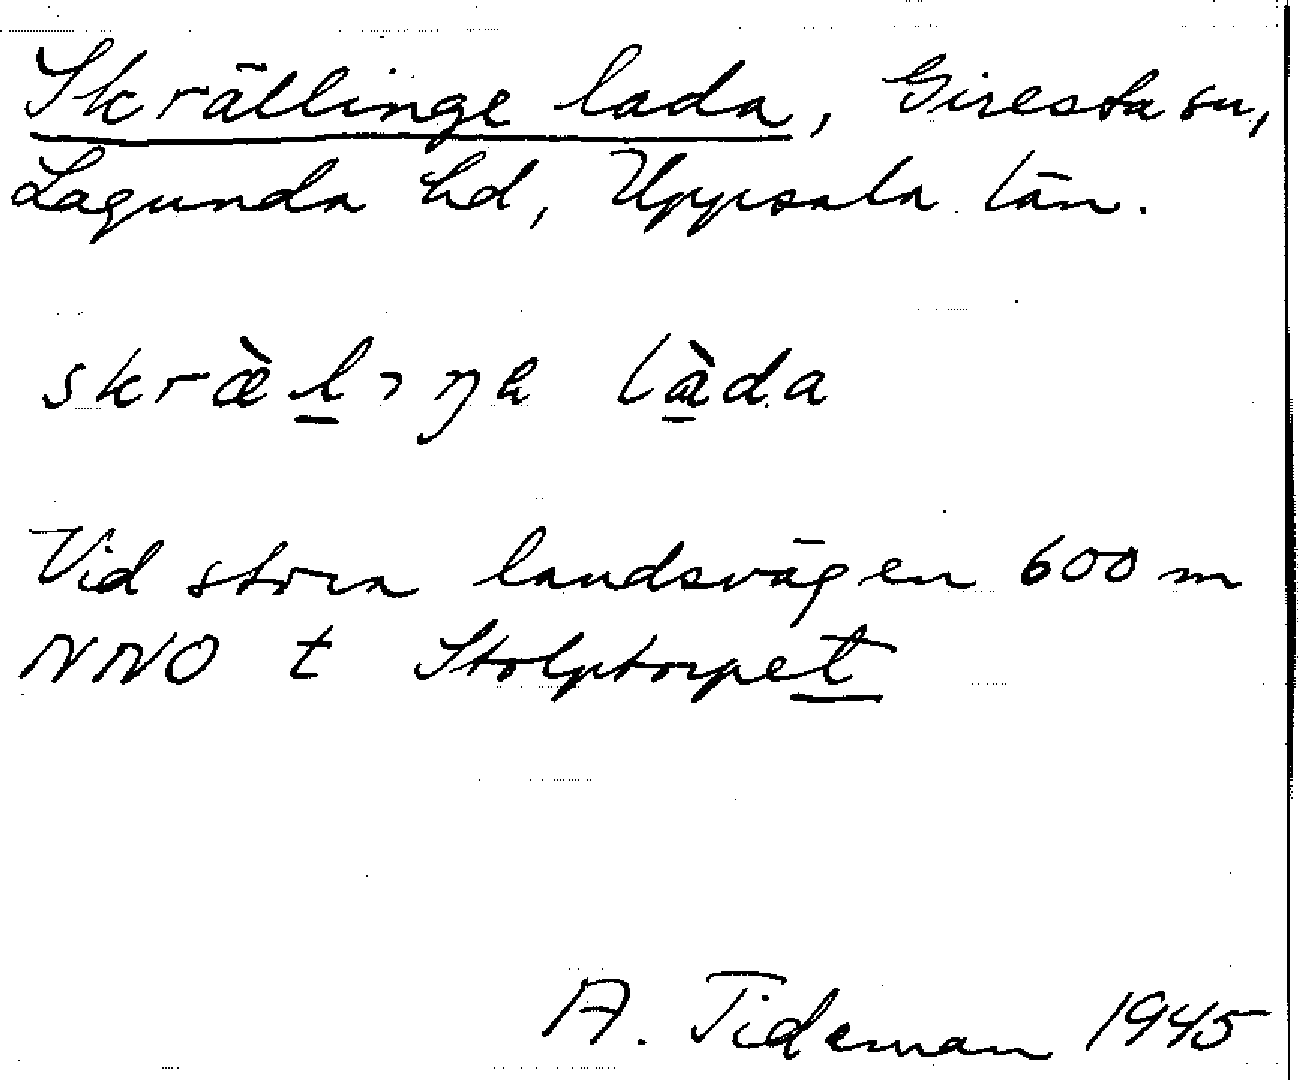 Skrällinge lada, Giresta sn,
Lagunda hd, Uppsala län.
skræ̀l̲ıŋe là̲da
Vid stora landsvägen 600 m
NNO t Stolptorpet
A. Tideman 1945